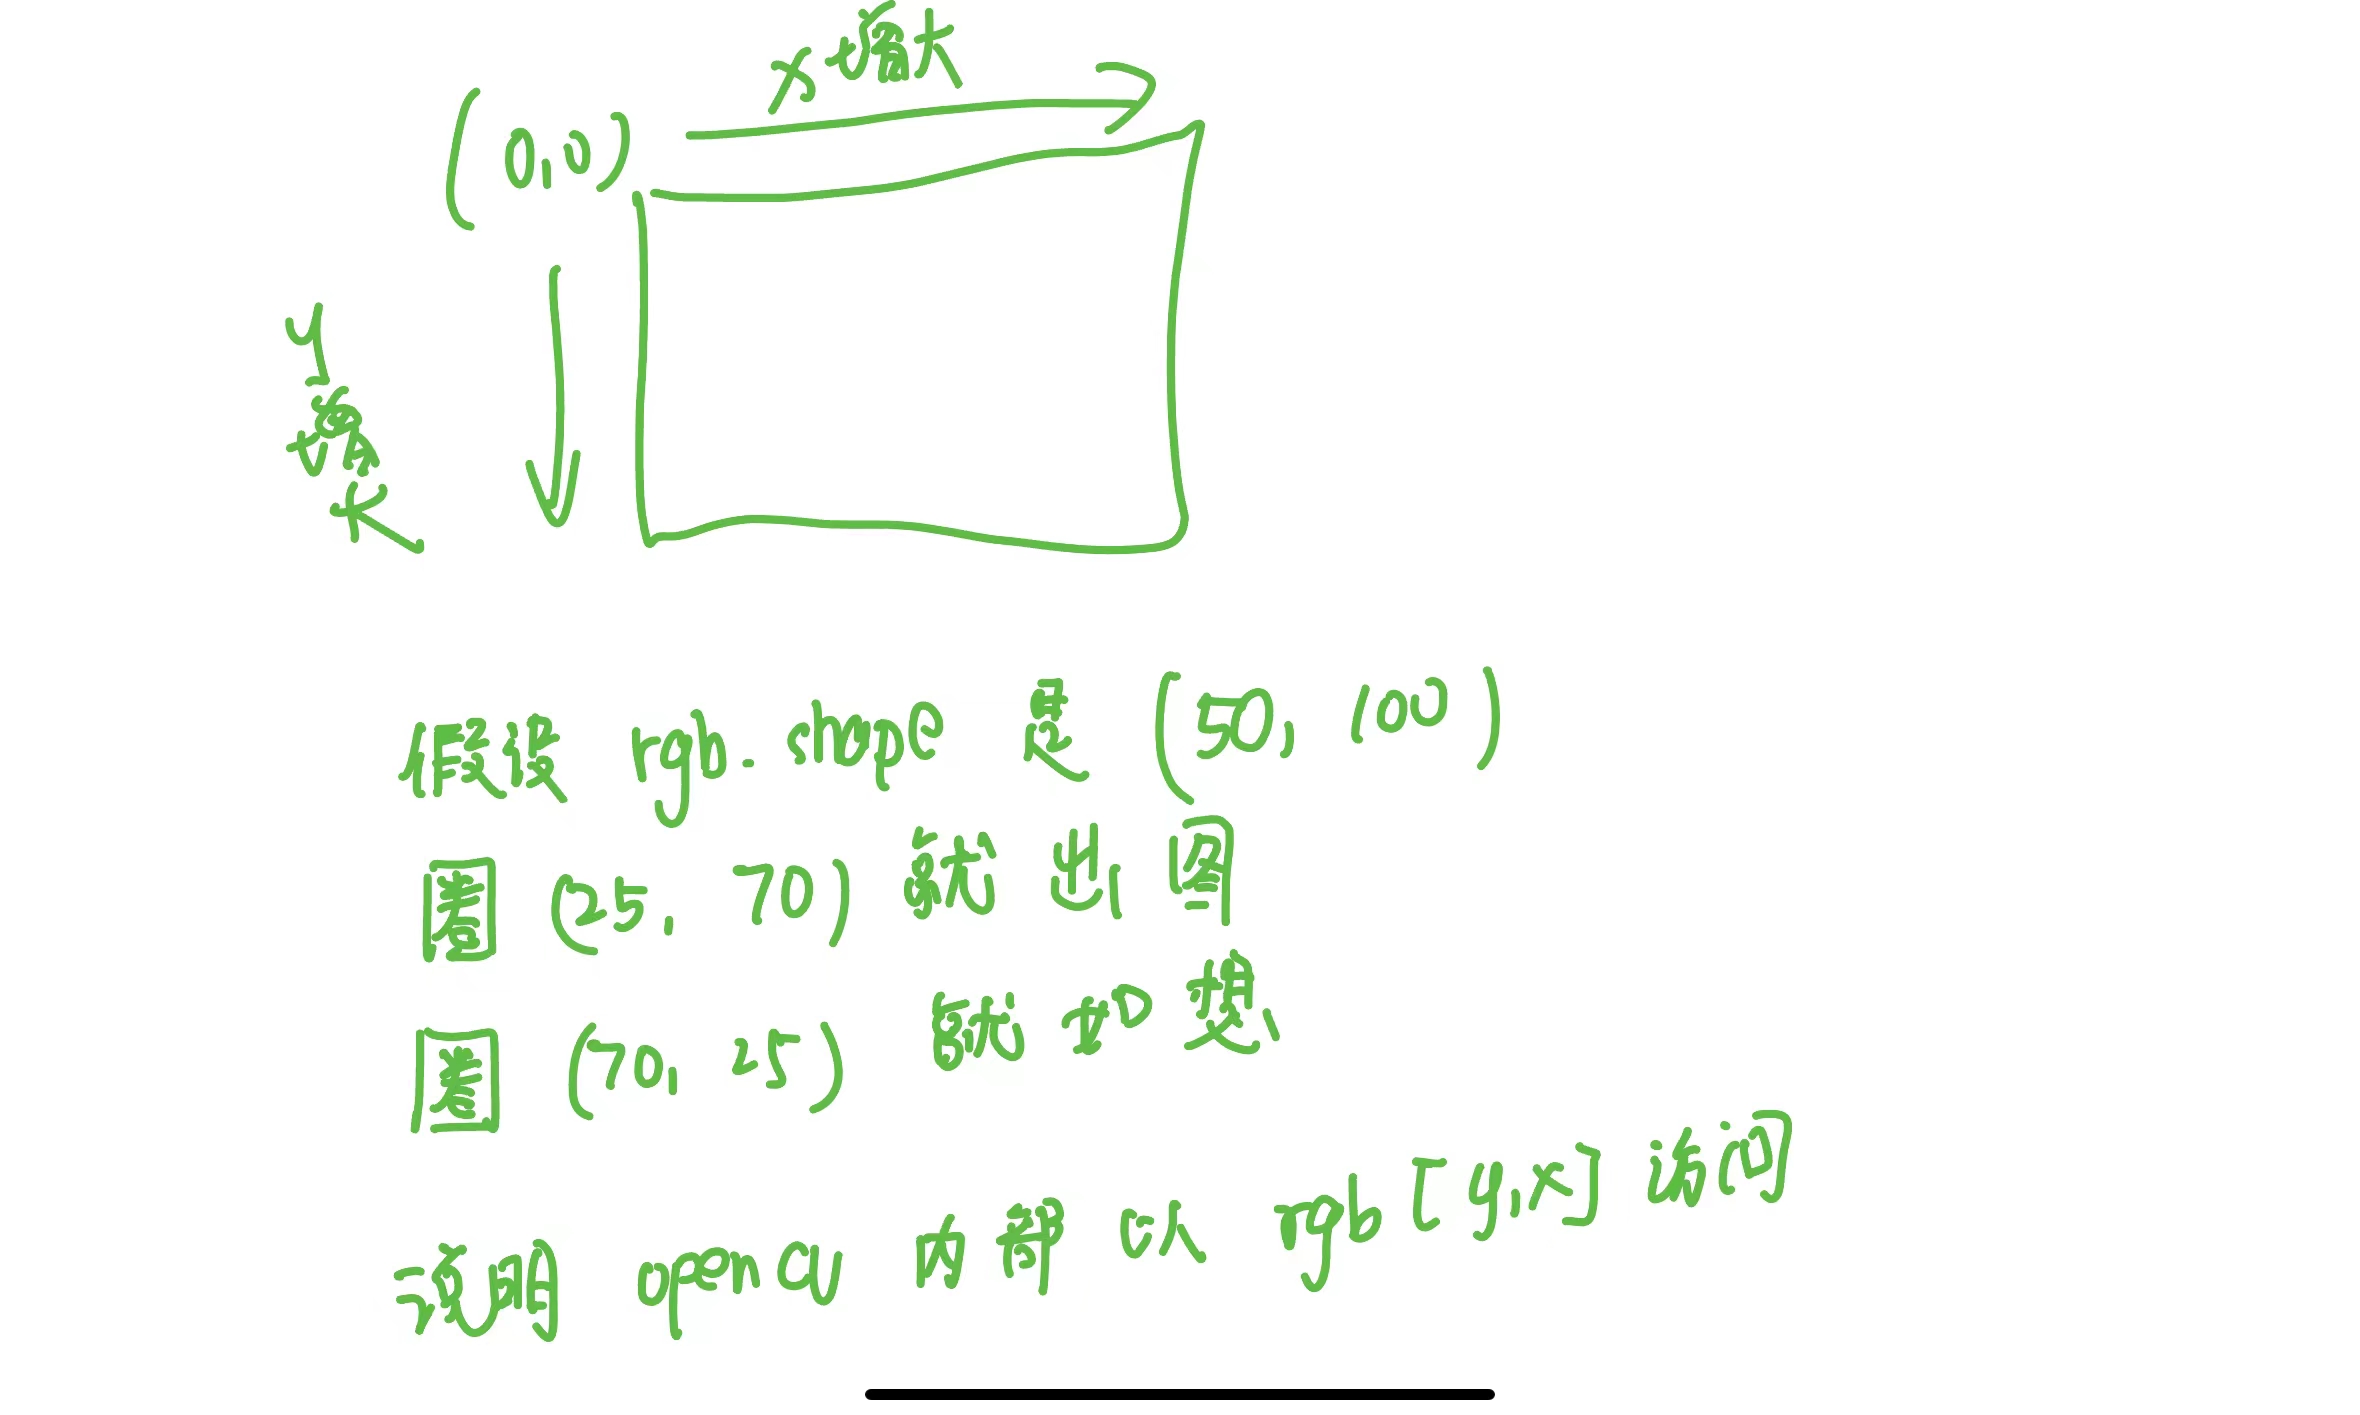 x 增大
(0,0)
y 增大
假设 rgb.shape 是 (50, 100)
圈 (25, 70) 就出图
圈 (70, 25) 就如想
说明 opencv 内部以 rgb [y,x] 访问